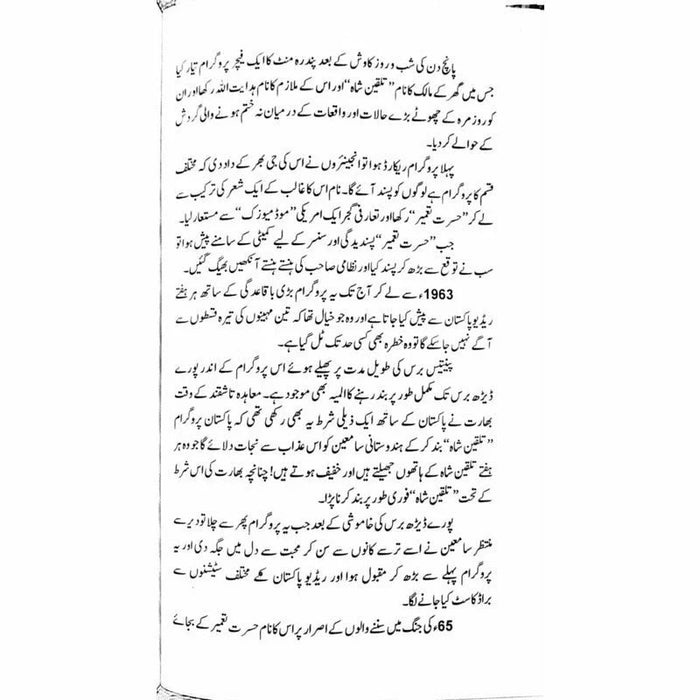 پانچ دن کی شب و روز کاوش کے بعد پندرہ منٹ کا ایک فیچر پروگرام تیار کیا
جس میں گھر کے مالک کا نام ”تلقین شاہ“ اور اس کے ملازم کا نام ہدایت اللہ رکھا اور ان
کو روزمرہ کے چھوٹے بڑے حالات اور واقعات کے درمیان نہ ختم ہونے والی گردش
کے حوالے کر دیا۔
پہلا پروگرام ریکارڈ ہوا تو انجینئروں نے اس کی جی بھر کے داد دی کہ مختلف
قسم کا پروگرام ہے لوگوں کو پسند آئے گا۔ نام اس کا غالب کے ایک شعر کی ترکیب سے
لے کر ”حسرت تعمیر“ رکھا اور تعارفی گجر ایک امریکی ”موڈ میوزک“ سے مستعار لیا۔
جب ”حسرت تعمیر“ پسندیدگی اور سنسر کے لیے کمیٹی کے سامنے پیش ہوا تو
سب نے توقع سے بڑھ کر پسند کیا اور نظامی صاحب کی ہنستے ہنستے آنکھیں بھیگ گئیں۔
1963ء سے لے کر آج تک یہ پروگرام بڑی باقاعدگی کے ساتھ ہر ہفتے
ریڈیو پاکستان سے پیش کیا جاتا ہے اور وہ جو خیال تھا کہ تین مہینوں کی تیرہ قسطوں سے
آگے نہیں جا سکے گا تو وہ خطرہ بھی کسی حد تک ٹل گیا ہے۔
پینتیس برس کی طویل مدت پر پھیلے ہوئے اس پروگرام کے اندر پورے
ڈیڑھ برس تک مکمل طور پر بند رہنے کا المیہ بھی موجود ہے۔ معاہدہ تاشقند کے وقت
بھارت نے پاکستان کے ساتھ ایک ذیلی شرط یہ بھی رکھی تھی کہ پاکستان پروگرام
”تلقین شاہ“ بند کر کے ہندوستانی سامعین کو اس عذاب سے نجات دلائے گا جو وہ ہر
ہفتے تلقین شاہ کے ہاتھوں جھیلتے ہیں اور خفیف ہوتے ہیں! چنانچہ بھارت کی اس شرط
کے تحت ”تلقین شاہ“ فوری طور پر بند کرنا پڑا۔
پورے ڈیڑھ برس کی خاموشی کے بعد جب یہ پروگرام پھر سے چلا تو دیر سے
منتظر سامعین نے اسے ترسے کانوں سے سن کر محبت سے دل میں جگہ دی اور یہ
پروگرام پہلے سے بڑھ کر مقبول ہوا اور ریڈیو پاکستان کے مختلف سٹیشنوں سے
براڈ کاسٹ کیا جانے لگا۔
65ء کی جنگ میں سننے والوں کے اصرار پر اس کا نام حسرت تعمیر کے بجائے